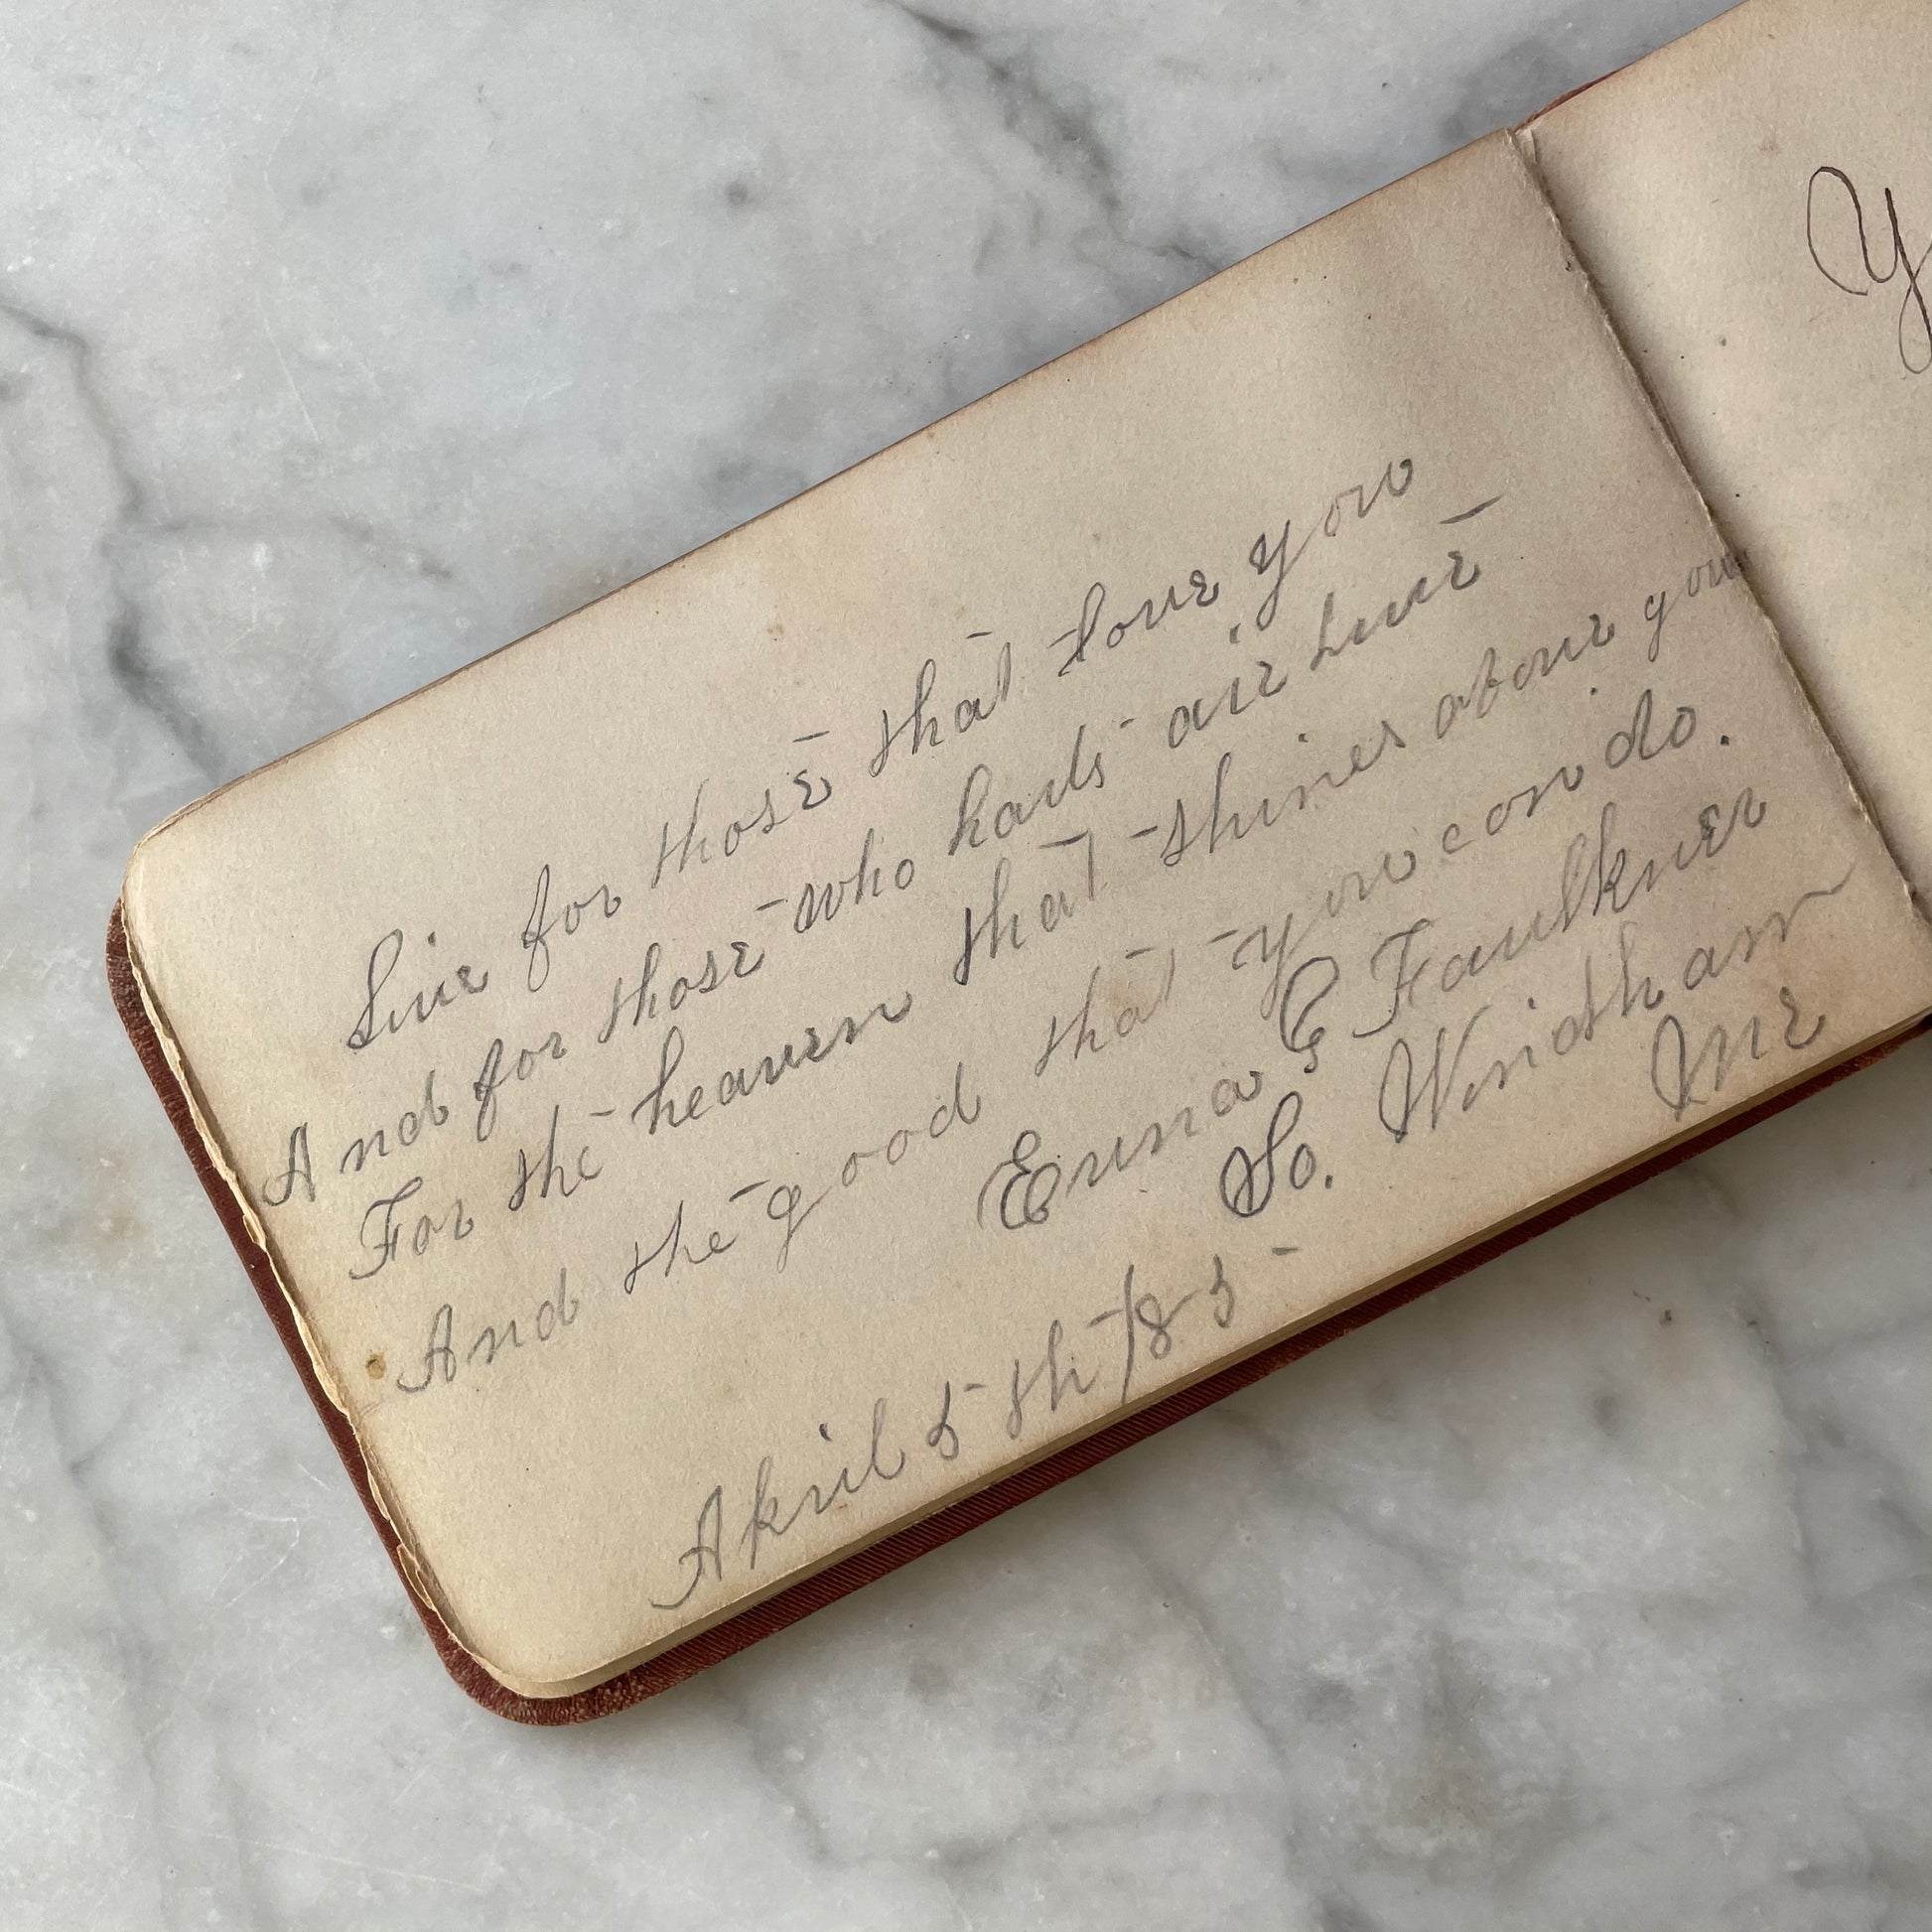 Live for those that love you
And for those who harts are true
For the heaven that shines above you
And the good that you can do.
Emma G Faulkner
So. Windham
Me
April 5th /85
Y